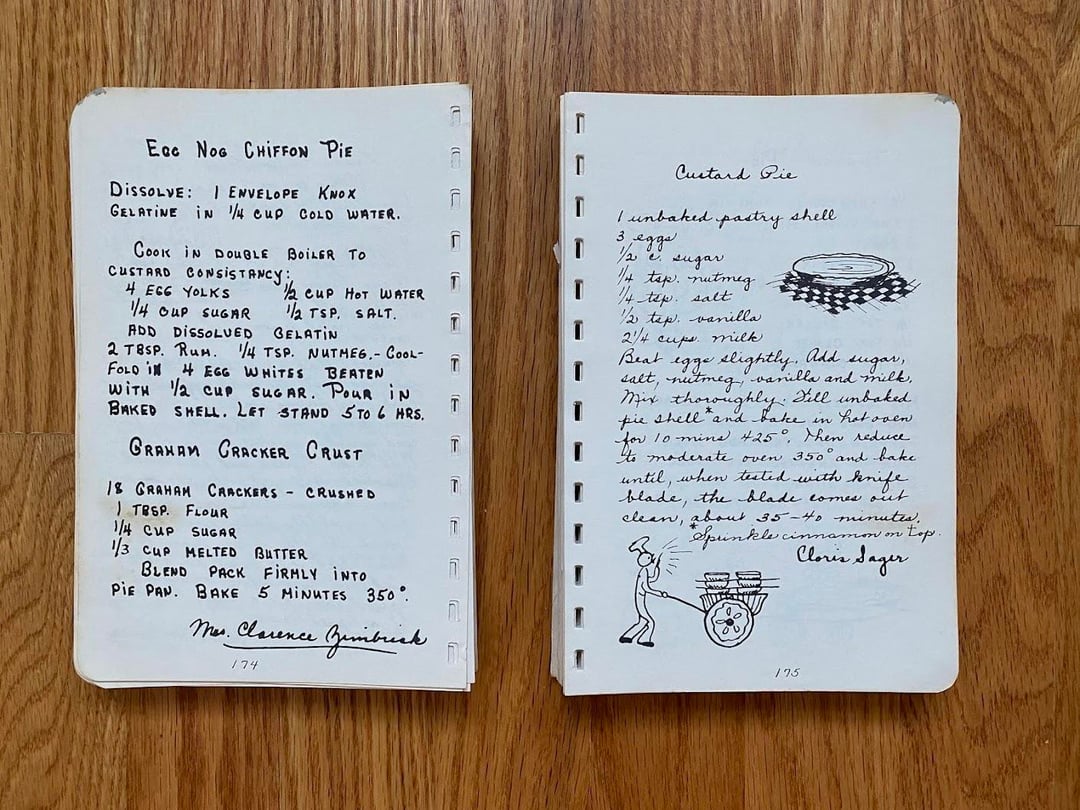 Egg Nog Chiffon Pie
Dissolve: 1 Envelope Knox
Gelatine in 1/4 cup cold water.
Cook in double boiler to
custard consistancy:
4 egg yolks 1/2 cup hot water
1/4 cup sugar 1/2 tsp. salt.
add dissolved gelatin
2 tbsp. Rum. 1/4 tsp. nutmeg.- Cool-
Fold in 4 egg whites beaten
with 1/2 cup sugar. Pour in
Baked shell. Let stand 5 to 6 hrs.
Graham Cracker Crust
18 Graham Crackers - crushed
1 tbsp. Flour
1/4 cup sugar
1/3 cup melted butter
Blend pack firmly into
pie pan. Bake 5 minutes 350°.
Mrs. Clarence Zimbrisk
174
Custard Pie
1 unbaked pastry shell
3 eggs
1/2 c. sugar
1/4 tsp. nutmeg
1/4 tsp. salt
1/2 tsp. vanilla
2 1/4 cups milk
Beat eggs slightly. Add sugar,
salt, nutmeg, vanilla and milk.
Mix thoroughly. Fill unbaked
pie shell* and bake in hot oven
for 10 mins 425°. Then reduce
to moderate oven 350° and bake
until, when tested with knife
blade, the blade comes out
clean, about 35-40 minutes.
*Sprinkle cinnamon on top.
Cloris Sager
175